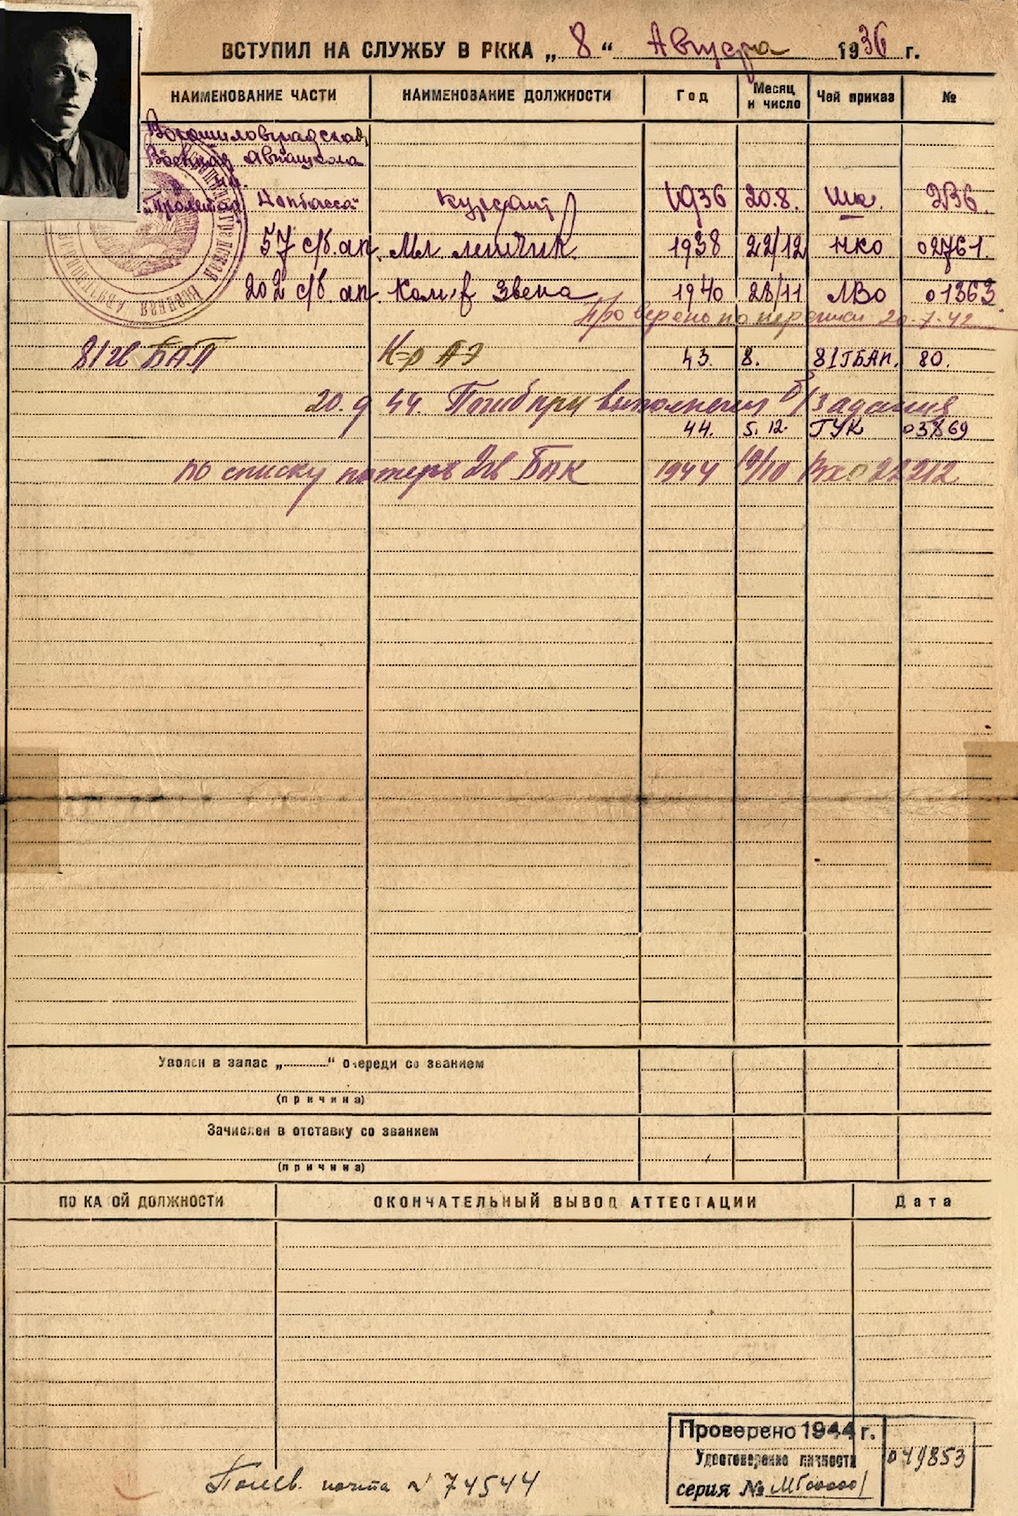 ВСТУПИЛ НА СЛУЖБУ В РККА „8“ Августа 1936 г.
НАИМЕНОВАНИЕ ЧАСТИ НАИМЕНОВАНИЕ ДОЛЖНОСТИ Год Месяц и число Чей приказ №
Ворошиловградская
Военная Авиашкола
им.
"Пролетар. Донбасса" Курсант 1936 20.8. Шк. 236.
57 с/б. ап. Мл летчик. 1938 22/12 НКО 02761.
202 с/б ап. Ком-р Звена 1940 28/11 ЛВО 01363
Проверено по переписи 20-7-42
81 гв БАП К-р АЭ 43. 8. 81 ГБАП. 80.
20.9 44. Погиб при выполнении б/задания
44. 5.12. ГУК 03869
по списку потерь 2 гв БАК 1944 19/10 Вх 022212
Уволен в запас „ “ очереди со званием
(причина)
Зачислен в отставку со званием
(причина)
ПО КА ОЙ ДОЛЖНОСТИ ОКОНЧАТЕЛЬНЫЙ ВЫВОД АТТЕСТАЦИИ Дата
Проверено 1944 г.
Удостоверение личности 049853
серия №
Полев. почта № 74544